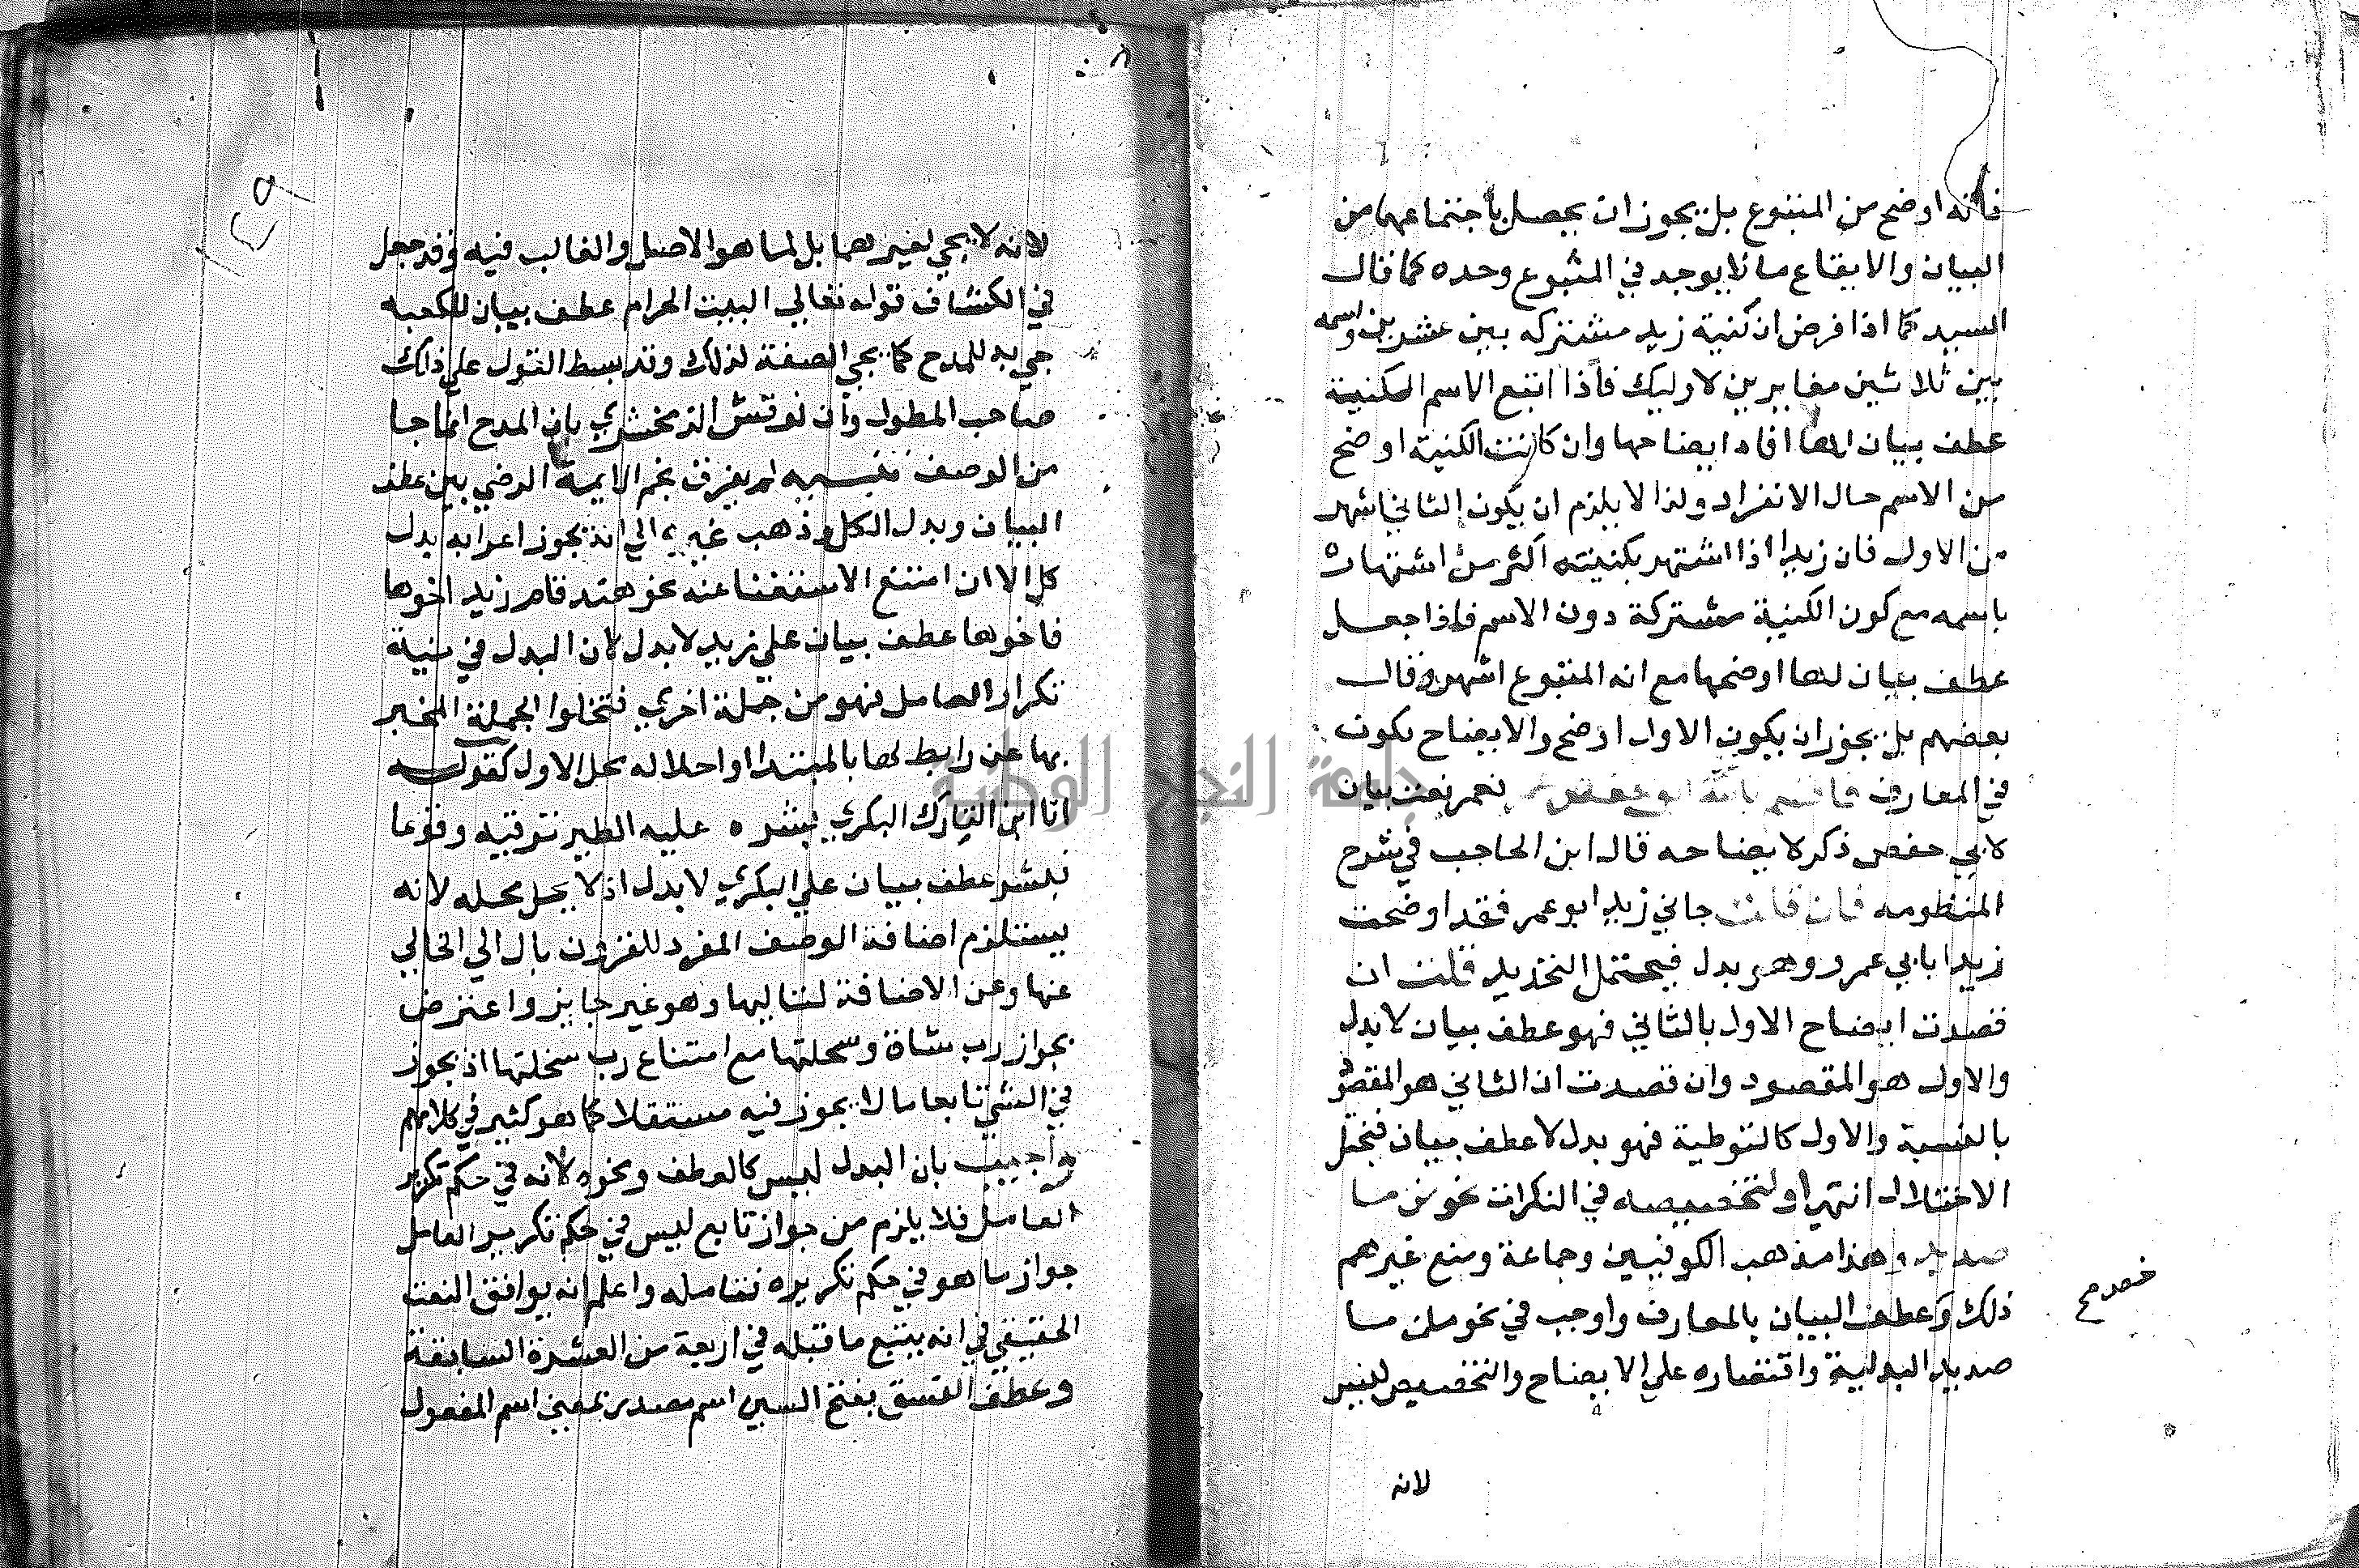 فانه اوضح من المتبوع بل يجوز ان يحصل باجتماعهما من
البيان والايقاع ما لا يوجد في المتبوع وحده كما قال
السيد كما اذا فرض ان كنية زيد مشتركه بين عشرين واسمه
بين ثلاثين مغايرين لاوليك فاذا اتبع الاسم الكنية
عطف بيان لها افاد ايضاحها وان كانت الكنية اوضح
من الاسم حال الانفراد ولذا لا يلزم ان يكون الثاني اشهر
من الاول فان زيدا اذا اشتهر بكنيته اكثر من اشتهاره
باسمه مع كون الكنية مشتركة دون الاسم فاذا جعل
عطف بيان لها اوضحها مع انه المتبوع اشهر وقال
بعضهم بل يجوز ان يكون الاول اوضح والايضاح يكون
في المعارف فاقسم بالله ابو حفص عمر فعمر نعت بيان
لابي حفص ذكر لايضاحه قال ابن الحاجب في شرح
المنظومه فان قلت جاني زيد ابو عمر فقد اوضحت
زيدا بابي عمرو وهو بدل فيحتمل التخديد قلت ان
قصدت ايضاح الاول بالثاني فهو عطف بيان لا بدل
والاول هو المقصود وان قصدت ان الثاني هو المقصود
بالنسبة والاول كالتوطية فهو بدل لا عطف بيان فنجل
الاختلال انتهى او لتخصيصه في النكرات نحو من ما
صديد وهذا مذهب الكوفيين وجماعة ومنع غيرهم
ذلك وعطف البيان بالمعارف واوجب في نحو من ما
صديد البدلية واقتصاره على الايضاح والتخصيص ليس
لانه
لانه لا يجي لغيرهما بل لما هو الاصل والغالب فيه وقد جعل
في الكشاف قوله تعالي البيت الحرام عطف بيان للكعبه
جي به للمدح كما يجي الصفة لذلك وقد بسط القول علي ذلك
صاحب المطول وان نوقش الزمخشري بان المدح انما جا
من الوصف تنبيه لم يفرق نجم الايمة الرضي بين عطف
البيان وبدل الكل وذهب غيره الي انه يجوز اعرابه بدل
كل الا ان امتنع الاستغنا عنه نحو هند قام زيد اخوها
فاخوها عطف بيان علي زيد لا بدل لان البدل في نية
تكرار العامل فهو من جملة اخري فتخلوا الجملة المخبر
بها عن رابط لها بالمبتدا او احلاله محل الاول كقوله
انا ابن التارك البكري بشره عليه الطير ترقبه وقوعا
فبشر عطف بيان علي البكري لا بدل اذ لا يحل محله لانه
يستلزم اضافة الوصف المفرد المقرون بال الي الخالي
عنها وعن الاضافة لتاليها وهو غير جايز واعترض
بجواز رب شاة وسخلتها مع امتناع رب سخلتها اذ يجوز
في الشي تابعا ما لا يجوز فيه مستقلا كما هو كثير في كلامهم
واجيب بان البدل ليس كالعطف ونحوه لانه في حكم تكرير
العامل فلا يلزم من جواز تابع ليس في حكم تكرير العامل
جواز ما هو في حكم تكريره فتامله واعلم انه يوافق النعت
الحقيقي في انه يتبع ما قبله في اربعة من العشرة السابقة
وعطف النسق بفتح السين اسم مصدر بمعنى اسم المفعول
١٣٩
جامعة النجاح الوطنية